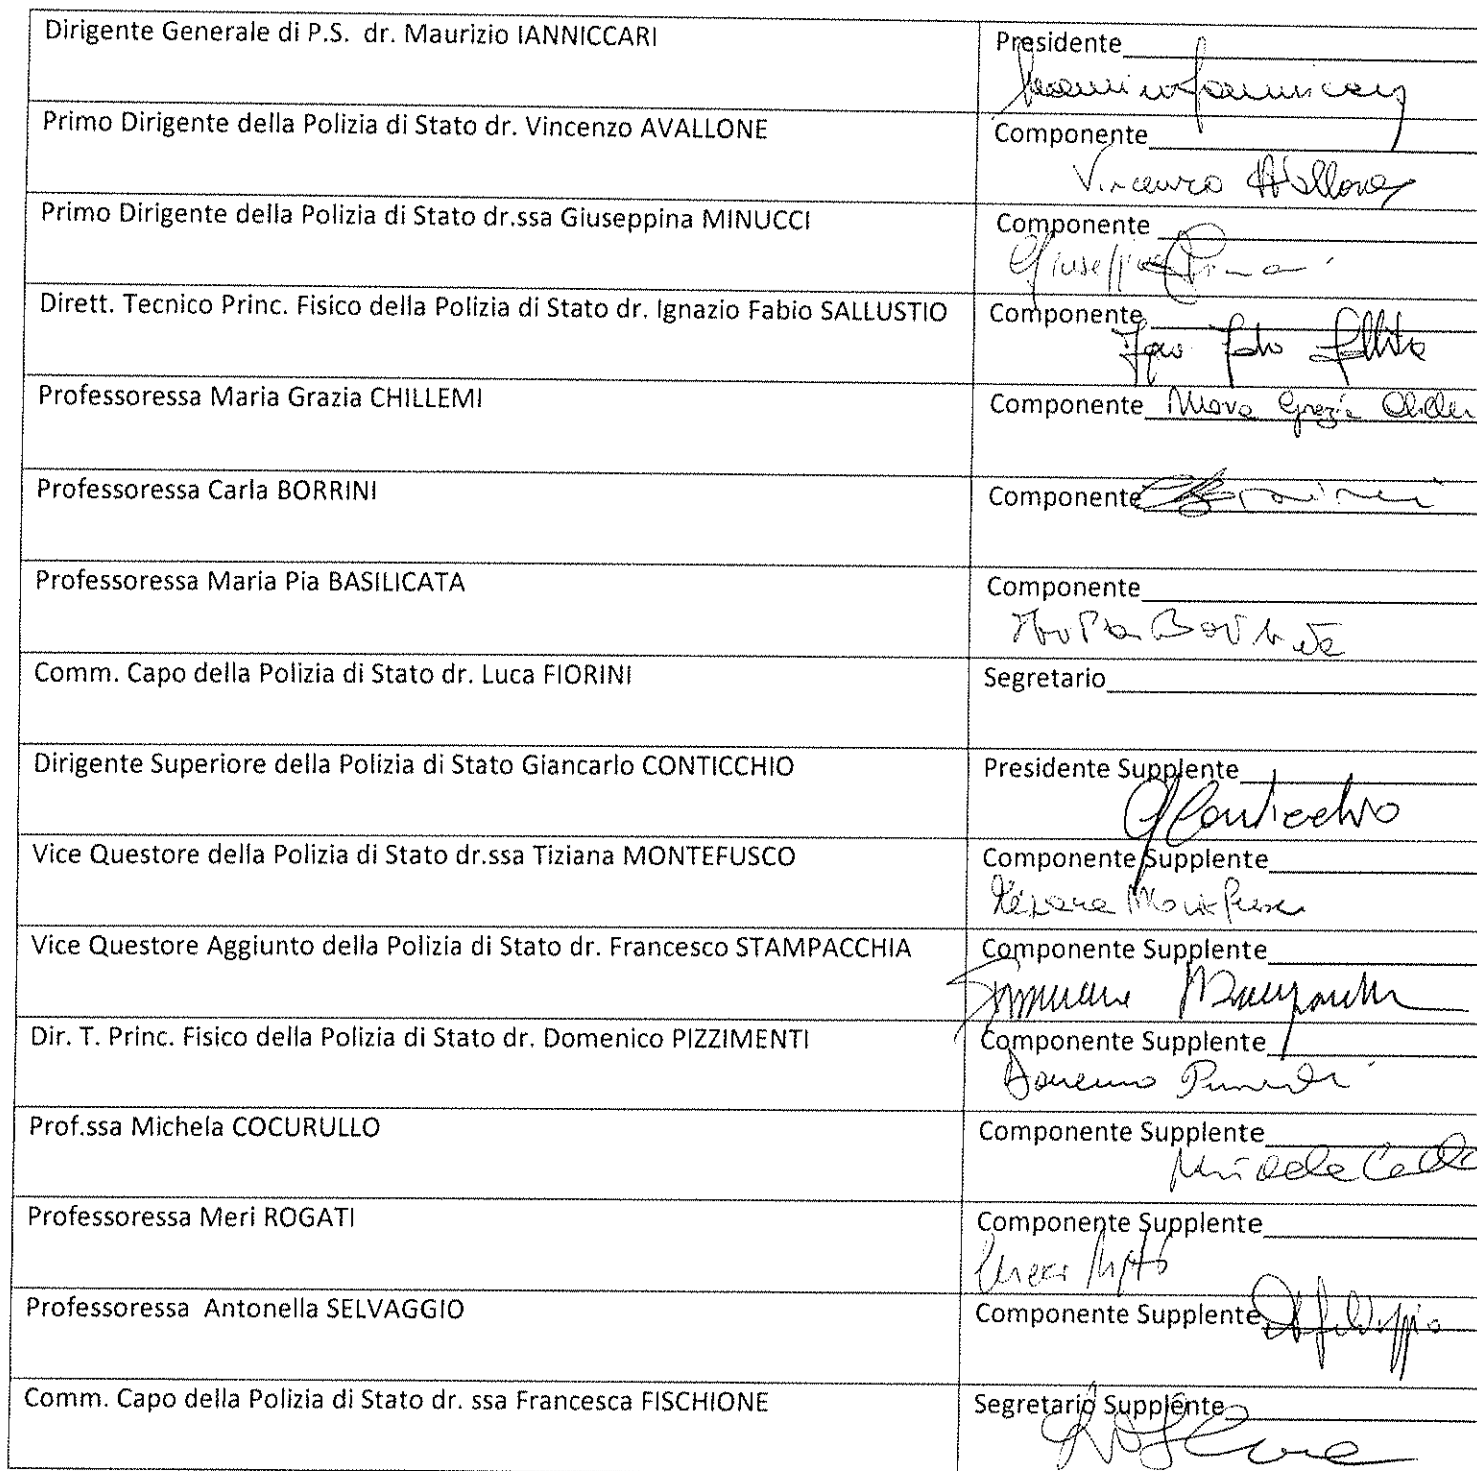 Dirigente Generale di P.S. dr. Maurizio IANNICCARI
Presidente
Primo Dirigente della Polizia di Stato dr. Vincenzo AVALLONE
Componente
Vincenzo Avallone
Primo Dirigente della Polizia di Stato dr.ssa Giuseppina MINUCCI
Componente
Dirett. Tecnico Princ. Fisico della Polizia di Stato dr. Ignazio Fabio SALLUSTIO
Componente
Professoressa Maria Grazia CHILLEMI
Componente Maria Grazia
Professoressa Carla BORRINI
Componente
Professoressa Maria Pia BASILICATA
Componente
Comm. Capo della Polizia di Stato dr. Luca FIORINI
Segretario
Dirigente Superiore della Polizia di Stato Giancarlo CONTICCHIO
Presidente Supplente
G Conticchio
Vice Questore della Polizia di Stato dr.ssa Tiziana MONTEFUSCO
Componente Supplente
Vice Questore Aggiunto della Polizia di Stato dr. Francesco STAMPACCHIA
Componente Supplente
Dir. T. Princ. Fisico della Polizia di Stato dr. Domenico PIZZIMENTI
Componente Supplente
Prof.ssa Michela COCURULLO
Componente Supplente
Professoressa Meri ROGATI
Componente Supplente
Professoressa Antonella SELVAGGIO
Componente Supplente
Comm. Capo della Polizia di Stato dr. ssa Francesca FISCHIONE
Segretario Supplente